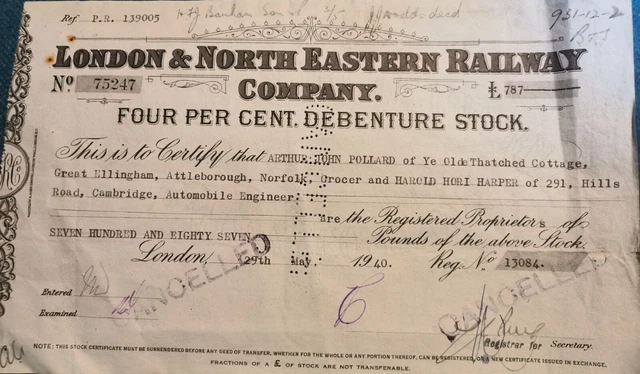 Ref P.R. 139005
931-12-2
LONDON & NORTH EASTERN RAILWAY
COMPANY.
Nº 75247
£ 787
FOUR PER CENT. DEBENTURE STOCK.
This is to Certify that ARTHUR JOHN POLLARD of Ye Olde Thatched Cottage,
Great Ellingham, Attleborough, Norfolk, Grocer and HAROLD HORI HARPER of 291, Hills
Road, Cambridge, Automobile Engineer
are the Registered Proprietors of
SEVEN HUNDRED AND EIGHTY SEVEN Pounds of the above Stock.
London, 29th May. 1940. Reg. Nº 13084.
CANCELLED
CANCELLED
Entered
Examined
Registrar for Secretary.
NOTE: THIS STOCK CERTIFICATE MUST BE SURRENDERED BEFORE ANY DEED OF TRANSFER, WHETHER FOR THE WHOLE OR ANY PORTION THEREOF, CAN BE REGISTERED, OR A NEW CERTIFICATE ISSUED IN EXCHANGE.
FRACTIONS OF A £ OF STOCK ARE NOT TRANSFERABLE.